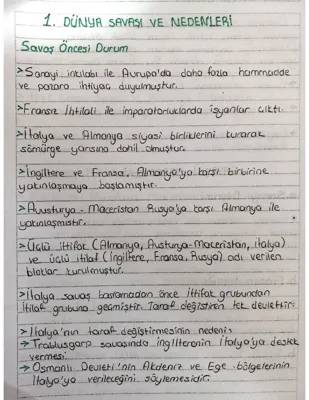 1. DÜNYA SAVAŞI VE NEDENLERİ
Savaş Öncesi Durum
>Sanayi inkılabı ile Avrupa'da daha fazla hammadde
ve pazara ihtiyaç duyulmuştur.
>Fransız İhtilali ile imparatorluklarda isyanlar çıktı.
>İtalya ve Almanya siyasi birliklerini kurarak
sömürge yarışına dahil olmuştur.
>İngiltere ve Fransa, Almanya'ya karşı birbirine
yakınlaşmaya başlamıştır.
>Avusturya-Macaristan Rusya'ya karşı Almanya ile
yakınlaşmıştır.
>Üçlü ittifak (Almanya, Avusturya-Macaristan, italya)
ve üçlü itilaf (İngiltere, Fransa, Rusya) adı verilen
bloklar kurulmuştur.
>İtalya savaş başlamadan önce İttifak grubundan
itilaf grubuna geçmiştir. Taraf değiştiren tek devlettir.
>İtalya'nın taraf değiştirmesinin nedeni:
→ Trablusgarp savaşında ingilterenin İtalya'ya destek
vermesi.
→ Osmanlı Devleti'nin Akdeniz ve Ege bölgelerinin
İtalya'ya verileceğini söylemesidir.